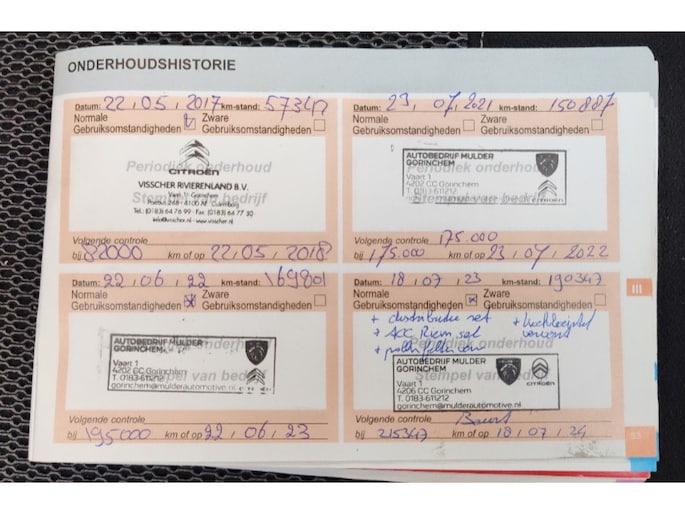 ONDERHOUDSHISTORIE
Datum: 22 , 05 , 2017 km-stand: 57347
Normale Zware
Gebruiksomstandigheden Gebruiksomstandigheden
Periodiek onderhoud
CITROËN
VISSCHER RIVIERENLAND B.V.
Stempel van bedrijf
Volgende controle
bij 82000 km of op 22/05/2018
Datum: 23 , 07 , 2021 km-stand: 150887
Normale Zware
Gebruiksomstandigheden Gebruiksomstandigheden
Periodiek onderhoud
AUTOBEDRIJF MULDER
GORINCHEM
Vaart 1
4202 CC Gorinchem
T. 0183-611212
CITROËN
Stempel van bedrijf
175.000
Volgende controle
bij 175.000 km of op 23 / 07 / 2022
Datum: 22 , 06 , 22 km-stand: 169801
Normale Zware
Gebruiksomstandigheden Gebruiksomstandigheden
Periodiek onderhoud
AUTOBEDRIJF MULDER
GORINCHEM
Vaart 1
4202 CC Gorinchem
T. 0183-611212
gorinchem@mulderautomotive.nl
Stempel van bedrijf
Volgende controle
bij 195000 km of op 22 / 06 / 23
Datum: 18 , 07 , 23 km-stand: 190347
Normale Zware
Gebruiksomstandigheden Gebruiksomstandigheden
+ distributie set
+ Riem set
+
Periodiek onderhoud
AUTOBEDRIJF MULDER
GORINCHEM
Vaart 1
4206 CC Gorinchem
T. 0183-611212
gorinchem@mulderautomotive.nl
CITROËN
Stempel van bedrijf
Volgende controle
bij 215347 km of op 18 / 07 / 24
III
53